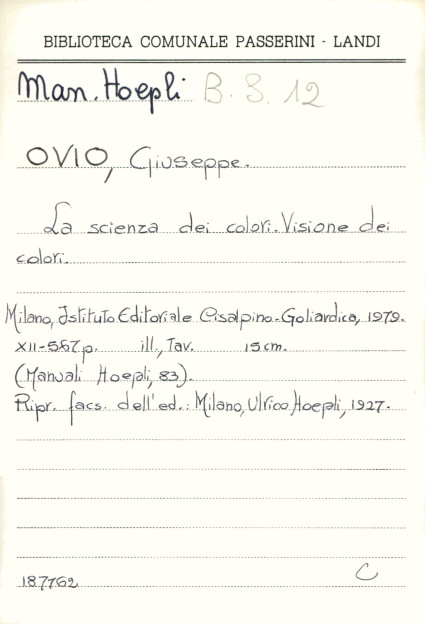 BIBLIOTECA COMUNALE PASSERINI - LANDI
Man. Hoepli B. S. 12
OVIO, Giuseppe.
La scienza dei colori. Visione dei
colori.
Milano, Istituto Editoriale Cisalpino-Goliardica, 1979.
XII-567 p. ill., Tav. 15 cm.
(Manuali Hoepli, 83).
Ripr. facs. dell'ed.: Milano, Ulrico Hoepli, 1927.
187762 C